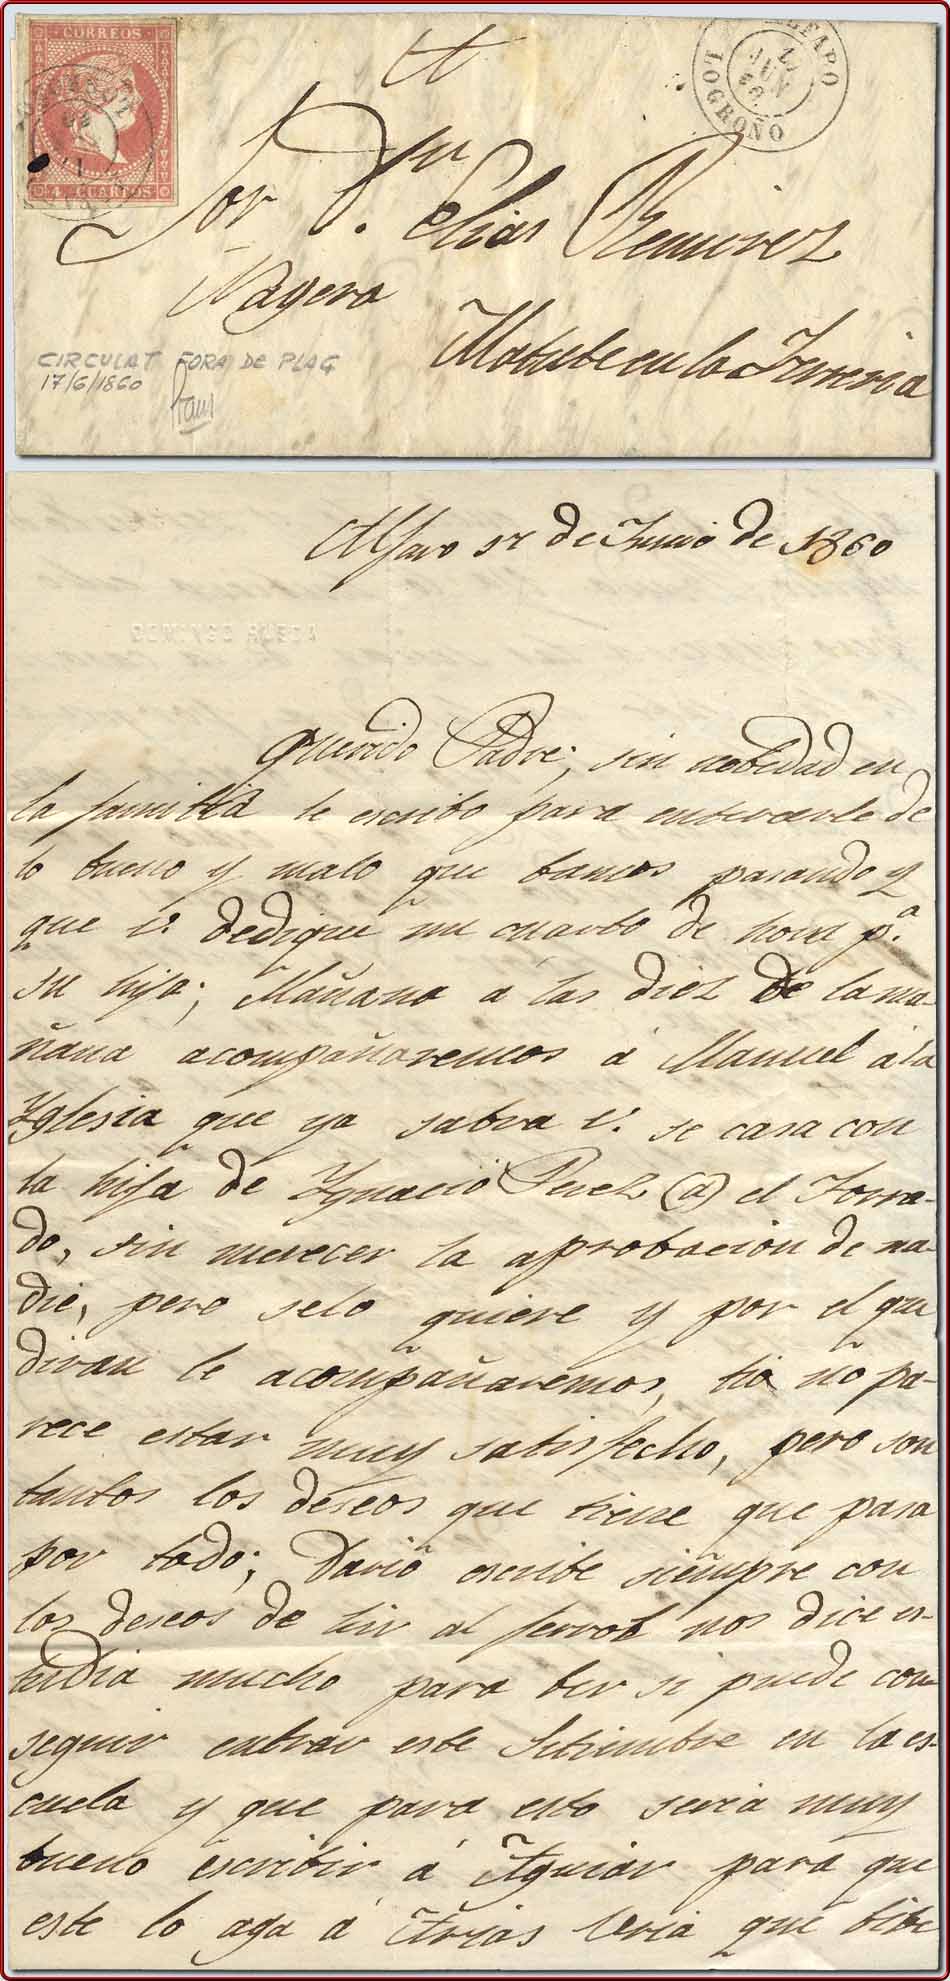 CORREOS
4 CUARTOS
ALFARO
JUN
LOGROÑO
Sor D.n Elias Remirez
Nagera
Matute en la
CIRCULAT FORA DE PLAÇ
17/6/1860
Alfaro 17 de Junio de 1860
DOMINGO RUEDA
Querido Padre; sin nobedad en
la familia le escribo para enterarle de
lo bueno y malo que bamos pasando y
que V. dedique un cuarto de hora p.a
su hijo; Mañana a las diez de la ma-
ñana acompañaremos á Manuel á la
Yglesia que ya sabra V. se casa con
la hija de Ygnacio Perez (a) el Jorra-
do, sin merecer la aprobacion de na-
die, pero selo quiere y por el que
diran le acompañaremos, tio no pa-
rece estar muy satisfecho, pero son
tantos los deseos que tiene que pasa
por todo; David escribe siempre con
los deseos de hir al ferrol nos dice es-
tudia mucho para ber si puede con-
seguir entrar este Setiembre en la es-
cuela y que para esto seria muy
bueno escribir á Aguiar para que
este lo aga á Arias Uria que bibe